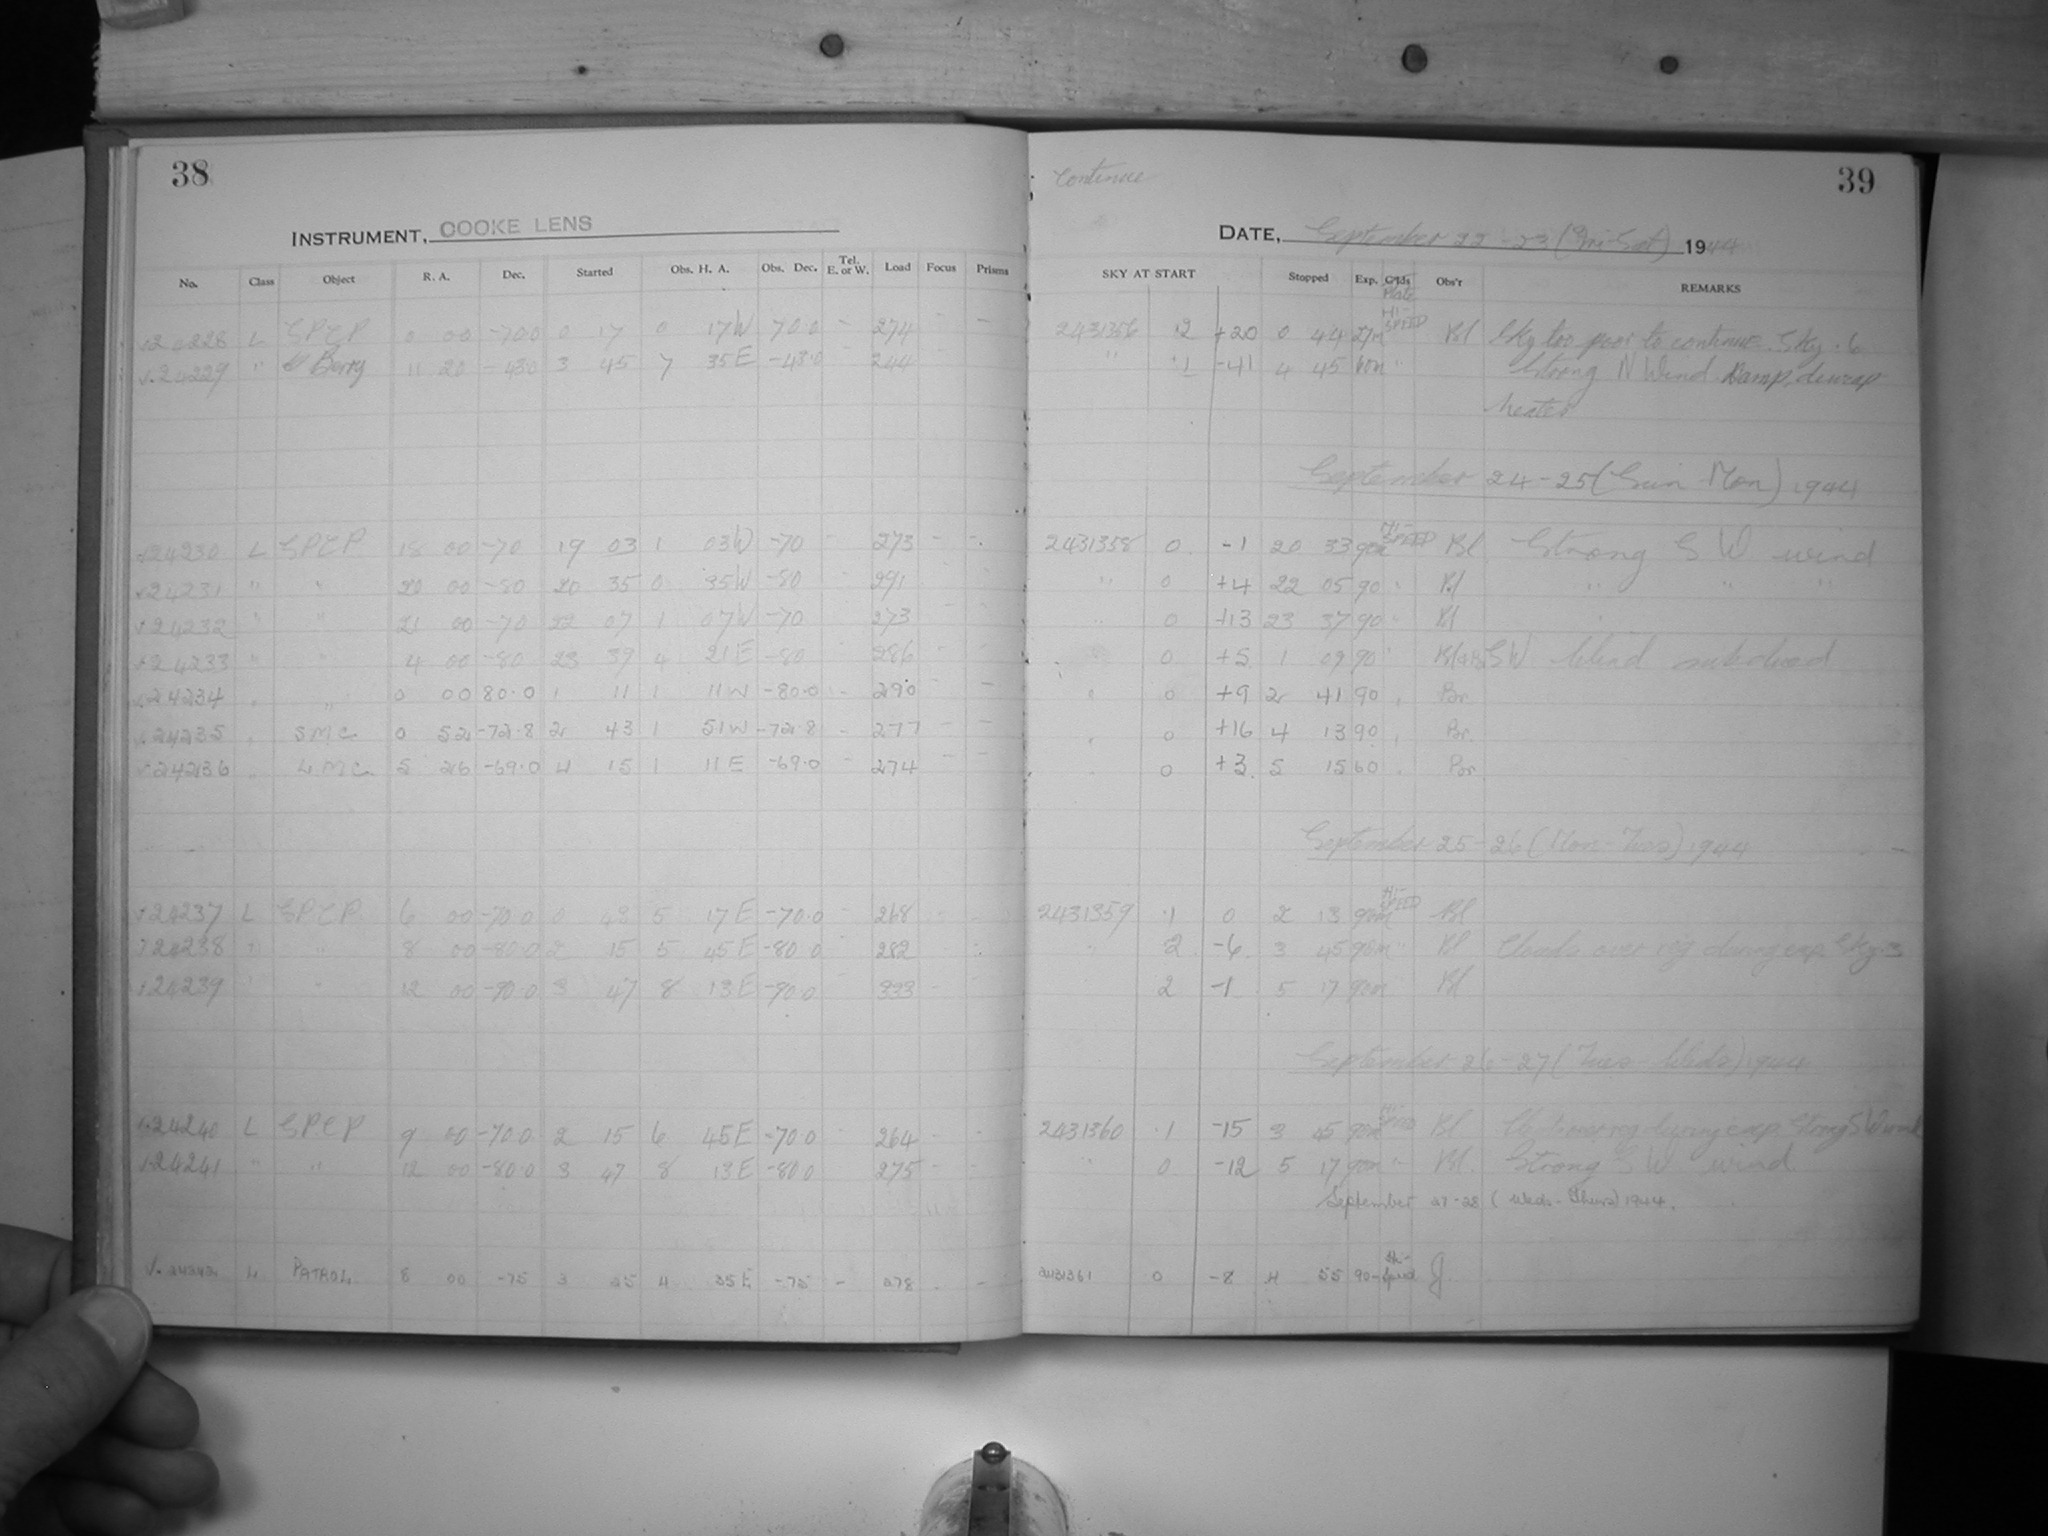 38
INSTRUMENT, COOKE LENS
No. Class Object R. A. Dec. Started Obs. H. A. Obs. Dec. Tel. E. or W. Load Focus Prisms
24228 L SPCP 0 00 -70.0 0 17 0 17W 70.0 - 274 - -
24229 " Berry 11 20 -43.0 3 45 7 35E -43.0 244
24230 L SPCP 18 00 -70 19 03 1 03W -70 - 273 - -
24231 " " 20 00 -80 20 35 0 35W -80 291
24232 " " 21 00 -70 22 07 1 07W -70 273
24233 " " 4 00 -80 23 39 4 21E -80 286
24234 " " 0 00 80.0 1 11 1 11W -80.0 - 290 - -
24235 " SMC 0 52 -72.8 2 43 1 51W -72.8 - 277 - -
24236 " LMC 5 26 -69.0 4 15 1 11E -69.0 - 274 - -
24237 L SPCP 6 00 -70.0 0 43 5 17E -70.0 268
24238 " " 8 00 -80.0 2 15 5 45E -80.0 282
24239 " " 12 00 -90.0 3 47 8 13E -90.0 333
24240 L SPCP 9 00 -70.0 2 15 6 45E -70.0 264 - -
24241 " " 12 00 -80.0 3 47 8 13E -80.0 275 - -
24242 L PATROL 8 00 -75 3 25 4 35E -75 - 278 - -
Continue
39
DATE, September 22-23 (Fri-Sat) 1944
SKY AT START Stopped Exp. Plate Obs'r REMARKS
2431356 .2 +20 0 44 27m HI-SPEED Bl Sky too poor to continue. Sky .6
" .1 -41 4 45 60m " Strong N Wind. Damp, dewcap
heater
September 24-25 (Sun-Mon) 1944
2431358 0 -1 20 33 90m HI-SPEED Bl Strong S W wind
" 0 +4 22 05 90 " Bl " " "
" 0 +13 23 37 90 " Bl
" 0 +5 1 09 90 " SW Wind
" 0 +9 2 41 90 " Br.
" 0 +16 4 13 90 " Br.
" 0 +3 5 15 60 " Br.
September 25-26 (Mon-Tues) 1944
2431359 .1 0 2 13 90m HI-SPEED Bl
" 2 -6 3 45 90m " Bl Clouds over reg during exp. Sky 3
2 -1 5 17 90m Bl
September 26-27 (Tues-Weds) 1944
2431360 .1 -15 3 45 90m HI-SPEED Bl over reg during exp. Strong SW wind
" 0 -12 5 17 90m " Bl. Strong S W wind
September 27-28 (Weds-Thurs) 1944.
2431361 0 -8 4 55 90- Hi-Speed J